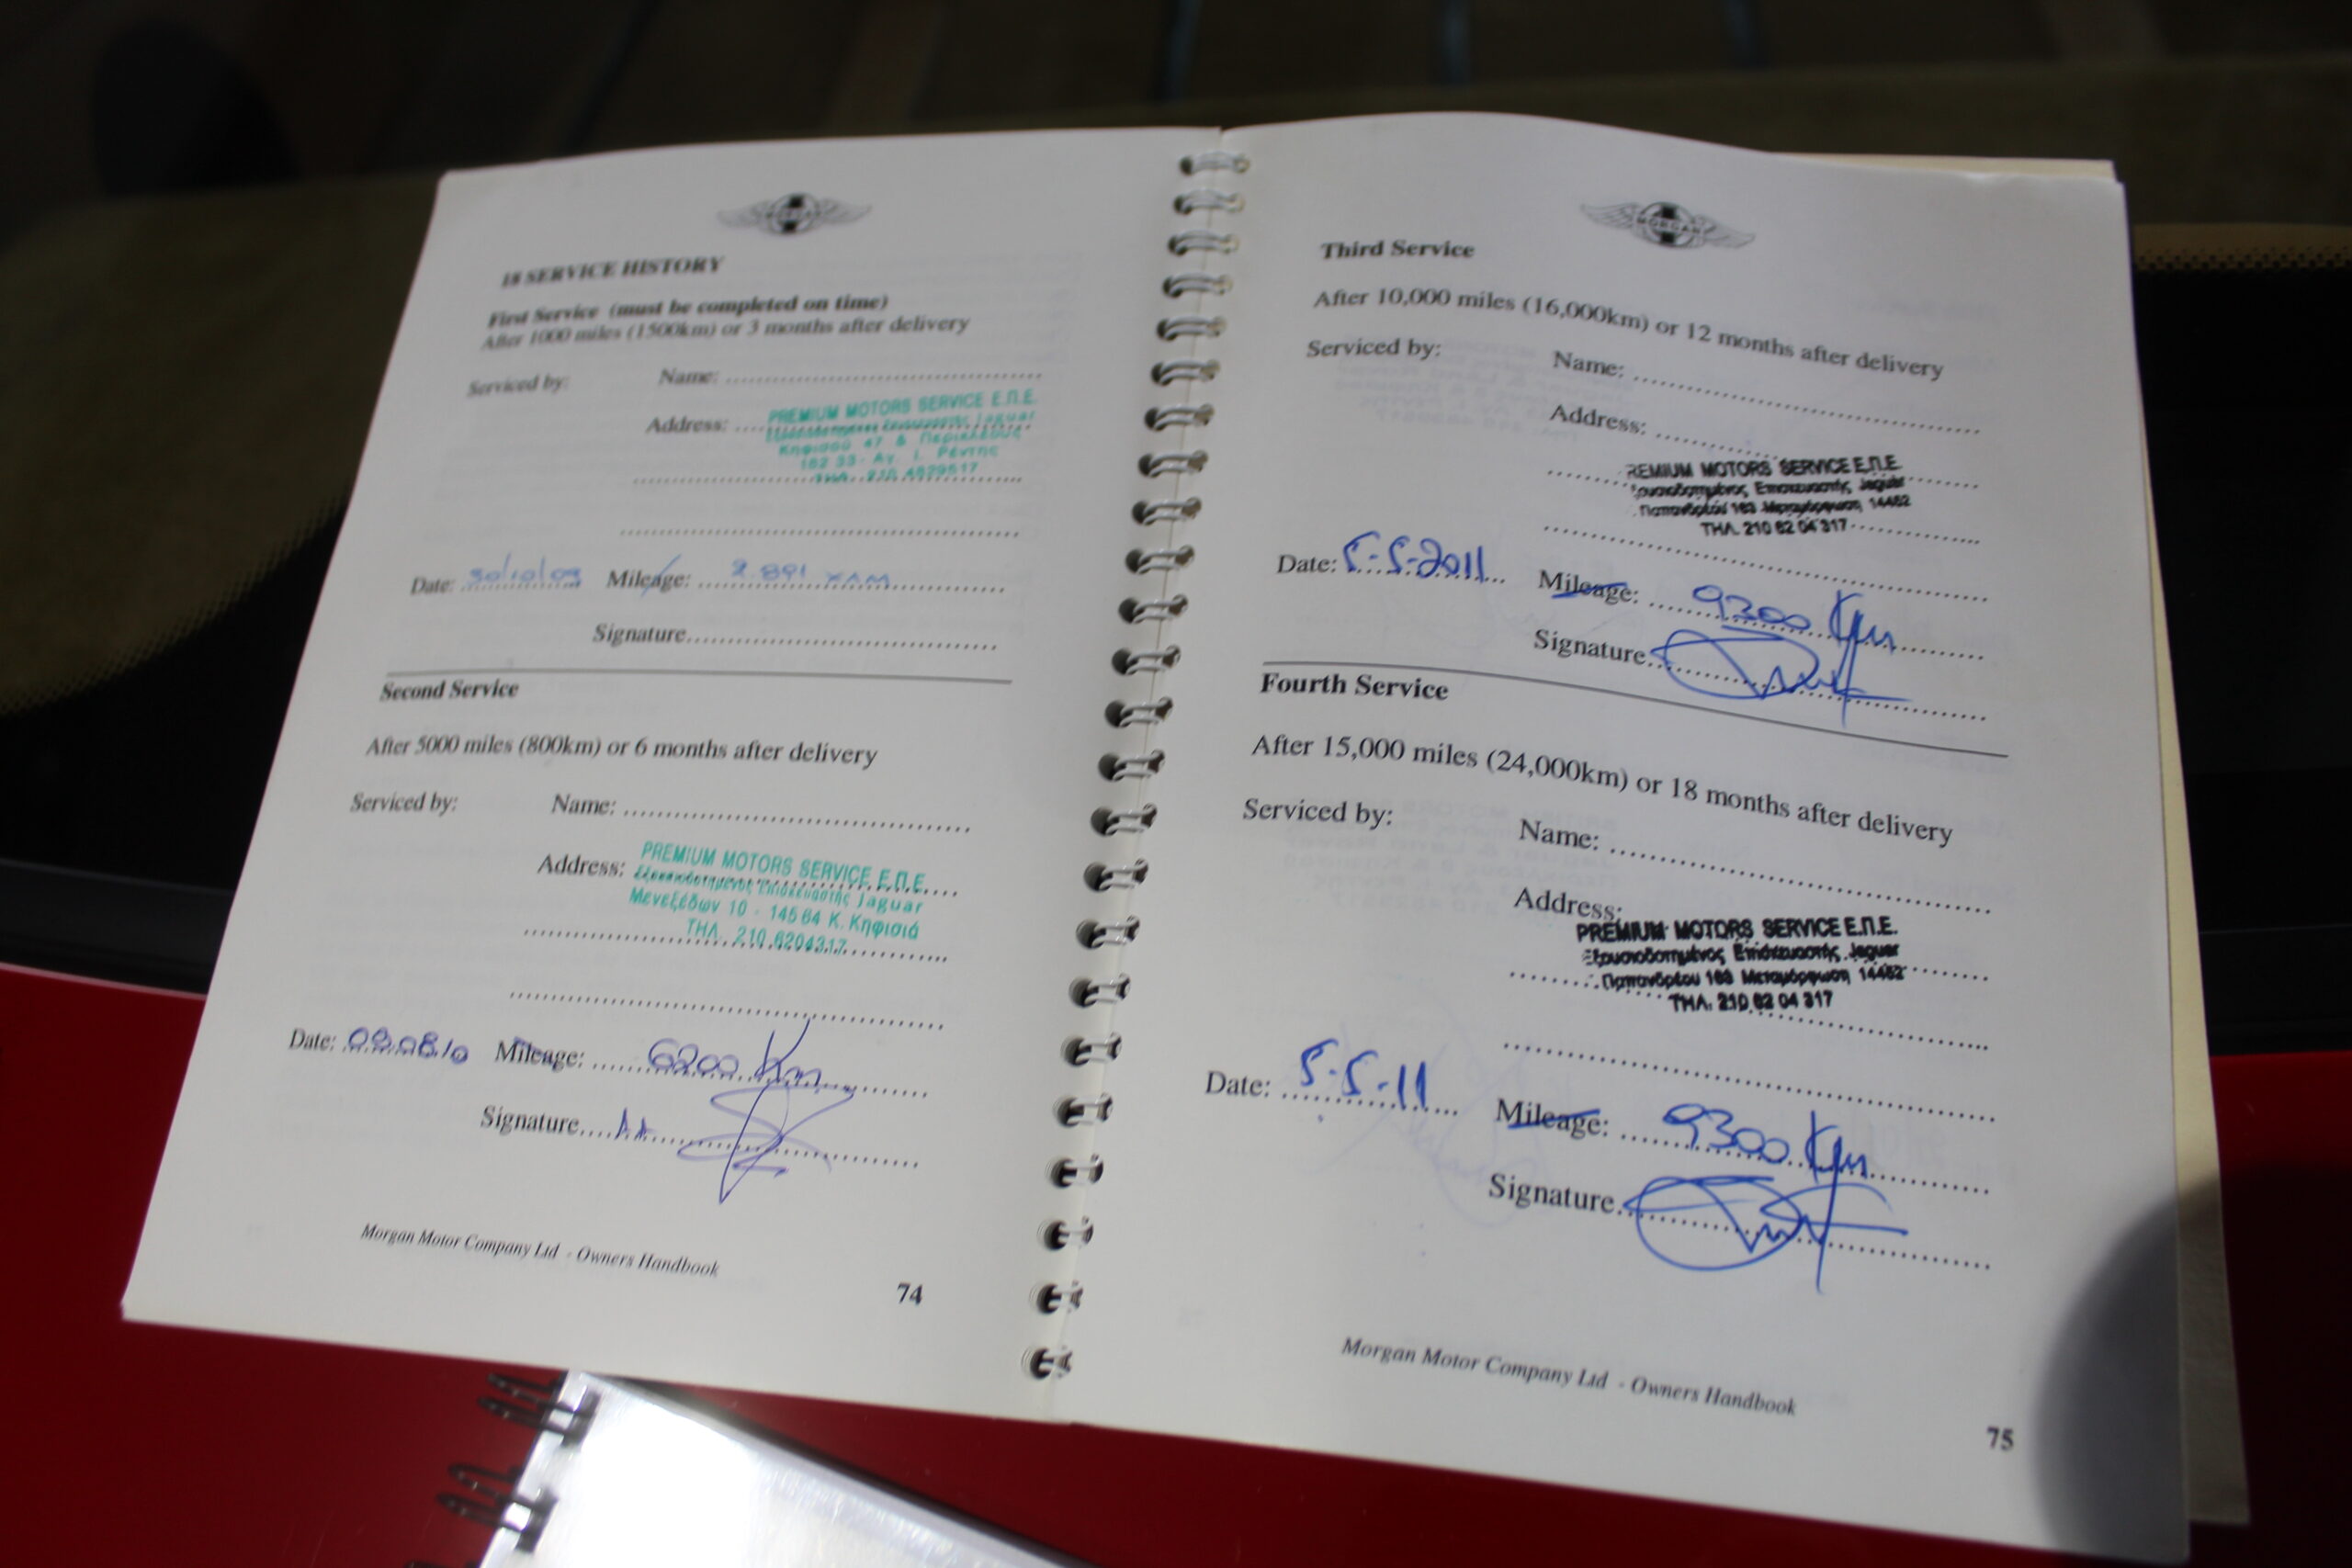 MORGAN
18 SERVICE HISTORY
First Service (must be completed on time)
After 1000 miles (1500km) or 3 months after delivery
Serviced by:
Name:
Address:
PREMIUM MOTORS SERVICE Ε.Π.Ε.
Επισκευαστής Jaguar
Κηφισού 47 & Περικλέους
182 33 - Αγ. Ι. Ρέντης
ΤΗΛ. 210 4829517
Date: 30/10/09 Mileage: 2.891 ΧΛΜ
Signature
Second Service
After 5000 miles (800km) or 6 months after delivery
Serviced by:
Name:
Address:
PREMIUM MOTORS SERVICE Ε.Π.Ε.
Εξουσιοδοτημένος Επισκευαστής Jaguar
Μενεξέδων 10 - 145 64 Κ. Κηφισιά
ΤΗΛ. 210 6204317
Date: 09.08/0 Mileage: 6200 Km
Signature
Morgan Motor Company Ltd - Owners Handbook
74
MORGAN
Third Service
After 10,000 miles (16,000km) or 12 months after delivery
Serviced by:
Name:
Address:
REMIUM MOTORS SERVICE Ε.Π.Ε.
ξουσιοδοτημένος Επισκευαστής Jaguar
Παπανδρέου 163 Μεταμόρφωση 14452
ΤΗΛ. 210 62 04 317
Date: 5-5-2011 Mileage: 9300 Km
Signature
Fourth Service
After 15,000 miles (24,000km) or 18 months after delivery
Serviced by:
Name:
Address:
PREMIUM MOTORS SERVICE Ε.Π.Ε.
Εξουσιοδοτημένος Επισκευαστής Jaguar
Παπανδρέου 163 Μεταμόρφωση 14452
ΤΗΛ. 210 62 04 317
Date: 5-5-11 Mileage: 9300 Km
Signature
Morgan Motor Company Ltd - Owners Handbook
75